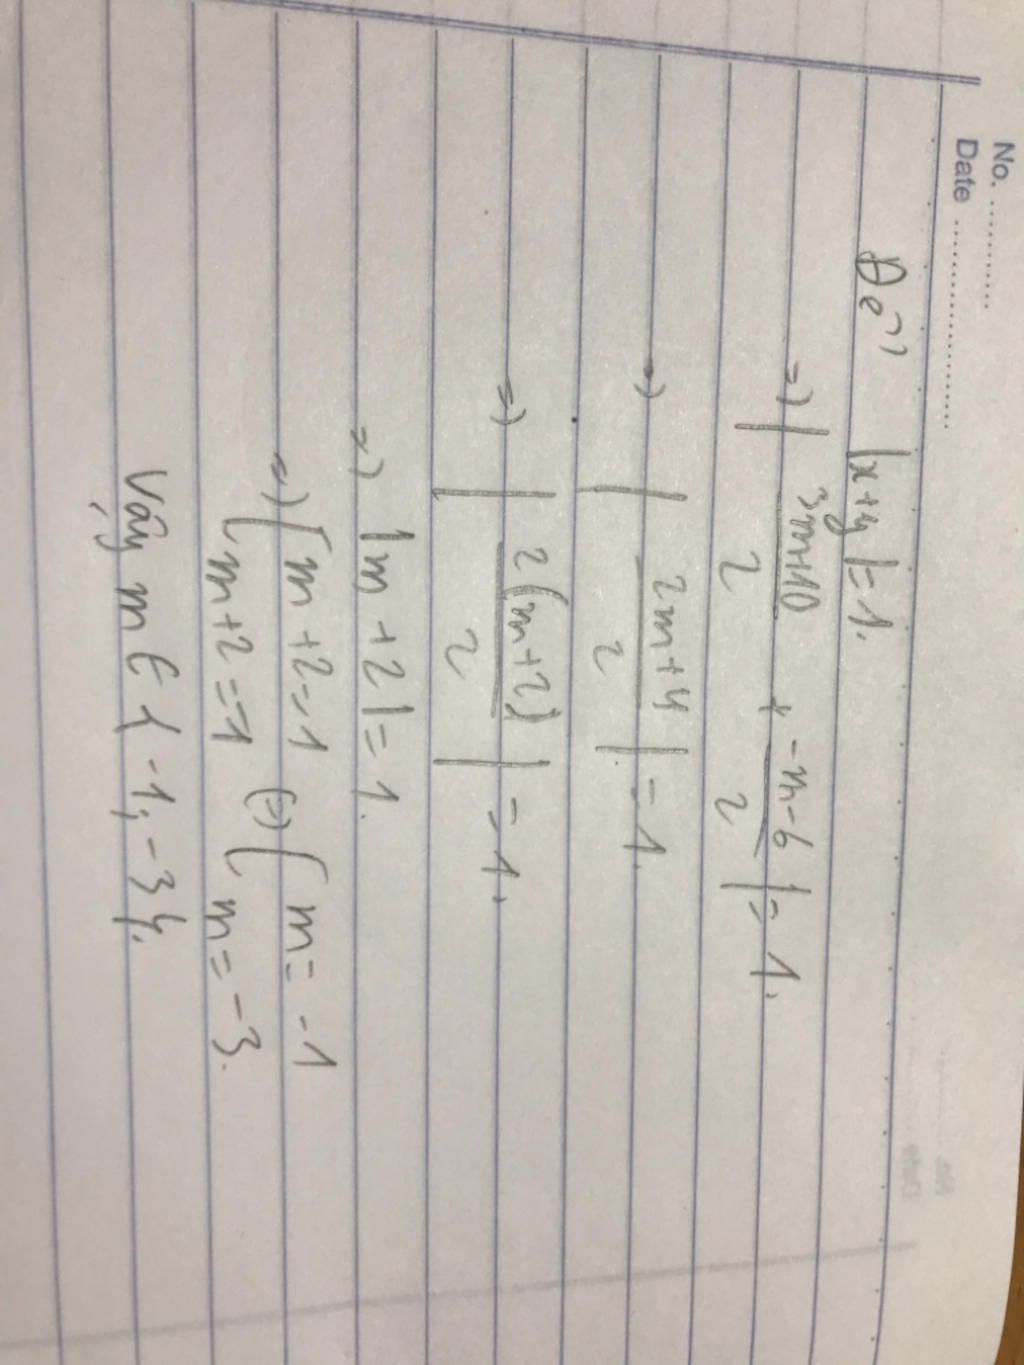 No. ............
Date ........................
Để |x+y|=1.
=) | 3m+10/2 + -m-6/2 | = 1.
=) | 2m+4/2 | = 1.
=) | 2(m+2)/2 | = 1.
=) |m+2|=1.
=) [ m+2=1 (=) [ m=-1
[ m+2=-1 [ m=-3.
Vậy m ∈ {-1; -3}.